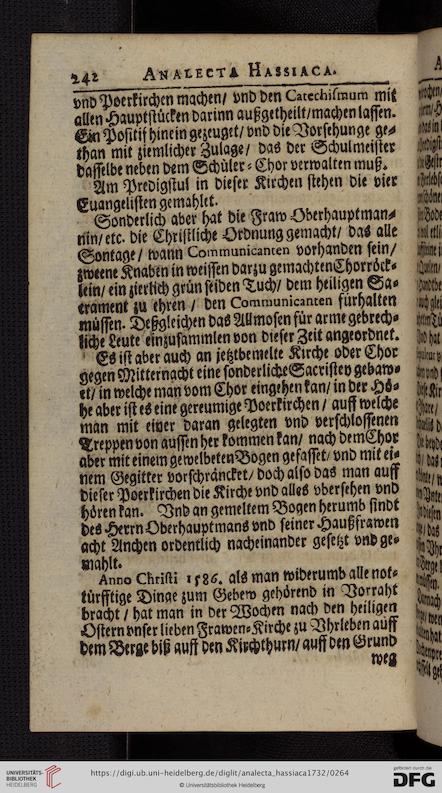 242 ANALECTA HASSIACA.
vnd Poerkirchen machen/ vnd den Catechismum mit
allen Hauptstücken darinn außgetheilt/machen lassen.
Ein Positif hinein gezeuget/ vnd die Vorsehunge ge-
than mit ziemlicher Zulage/ das der Schulmeister
dasselbe neben dem Schüler-Chor verwalten muß.
Am Predigstul in dieser Kirchen stehen die vier
Euangelisten gemahlet.
Sonderlich aber hat die Fraw Oberhauptman-
nin/etc. die Christliche Ordnung gemacht/ das alle
Sontage/ wann Communicanten vorhanden sein/
zweene Knaben in weissen darzu gemachten Chorröck-
lein/ ein zierlich grün seiden Tuch/ dem heiligen Sa-
crament zu ehren / den Communicanten fürhalten
müssen. Deßgleichen das Allmosen für arme gebrech-
liche Leute einzusammlen von dieser Zeit angeordnet.
Es ist aber auch an jetztbemelte Kirche oder Chor
gegen Mitternacht eine sonderliche Sacristey gebaw-
et/ in welche man vom Chor eingehen kan/ in der Hö-
he aber ist es eine gereumige Poerkirchen/ auff welche
man mit einer daran gelegten vnd verschlossenen
Treppen von aussen her kommen kan/ nach dem Chor
aber mit einem gewelbeten Bogen gefasset/ vnd mit ei-
nem Gegitter vorschräncket/ doch also das man auff
dieser Poerkirchen die Kirche vnd alles vbersehen vnd
hören kan. Vnd an gemeltem Bogen herumb sindt
des Herrn Oberhauptmans vnd seiner Haußfrawen
acht Anchen ordentlich nacheinander gesetzt vnd ge-
mahlt.
Anno Christi 1586. als man widerumb alle not-
türfftige Dinge zum Gebew gehörend in Vorraht
bracht/ hat man in der Wochen nach den heiligen
Ostern vnser lieben Frawen-Kirche zu Vhrleben auff
dem Berge biß auff den Kirchthurn/ auff den Grund
weg
UNIVERSITÄTS-
BIBLIOTHEK
HEIDELBERG
https://digi.ub.uni-heidelberg.de/diglit/analecta_hassiaca1732/0264
© Universitätsbibliothek Heidelberg
gefördert durch die
DFG